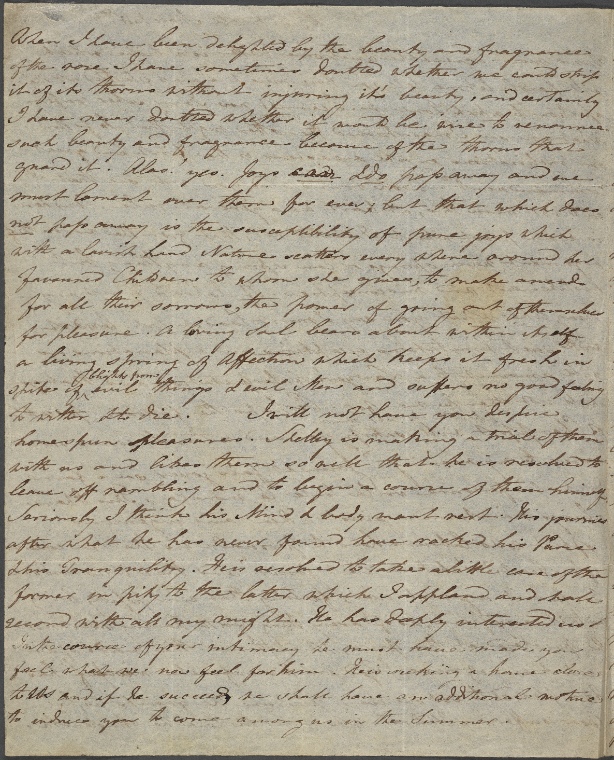 When I have been delighted by the beauty and fragrance
of the rose I have sometimes doubted whether we could strip
it of its thorns without injuring its beauty, and certainly
I have never doubted whether it would be wise to renounce
such beauty and fragrance because of the thorns that
guard it. Alas! yes. Joys do pass away and we
must lament over them for ever; but that which does
not pass away is the susceptibility of pure joys which
with a lavish hand Nature scatters every where around her
favoured Children to whom she gives, to make amends
for all their sorrows, the power of going out of themselves
for pleasure. A loving Soul bears about within itself
a living spring of Affection which keeps it fresh in
spite of blights from evil things & evil Men and suffers no good feeling
to wither & to die. I will not have you despise
homespun pleasures. Shelley is making a trial of them
with us and likes them so well that he is resolved to
leave off rambling and to begin a course of them himself
Seriously I think his Mind & body want rest. His journies
after what he has never found have racked his Purse
& his Tranquility. He is resolved to take a little care of the
former in pity to the latter which I applaud and shall
second with all my might. He has deeply interested us.
In the course of your intimacy he must have made you
feel what we now feel for him. He is seeking a house close
to Us and if he succeed, we shall have an additional motive
to induce you to come among us in the Summer.